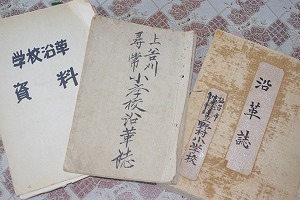 学校沿革
資料
上古川
尋常小学校沿革誌
沿革誌
野村小学校